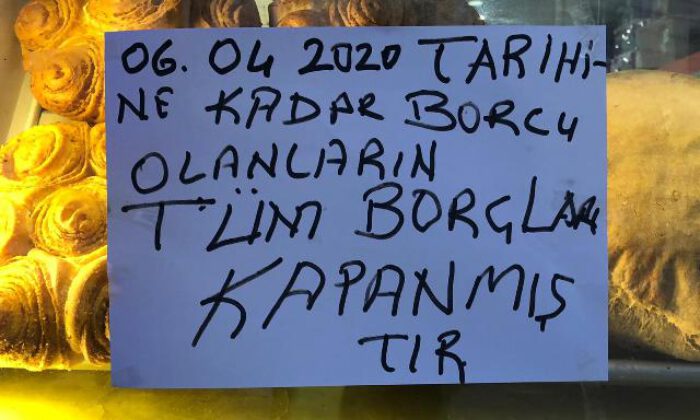 06.04 2020 TARİHİ-
NE KADAR BORCU
OLANLARIN
TÜM BORÇLARI
KAPANMIŞ
TIR